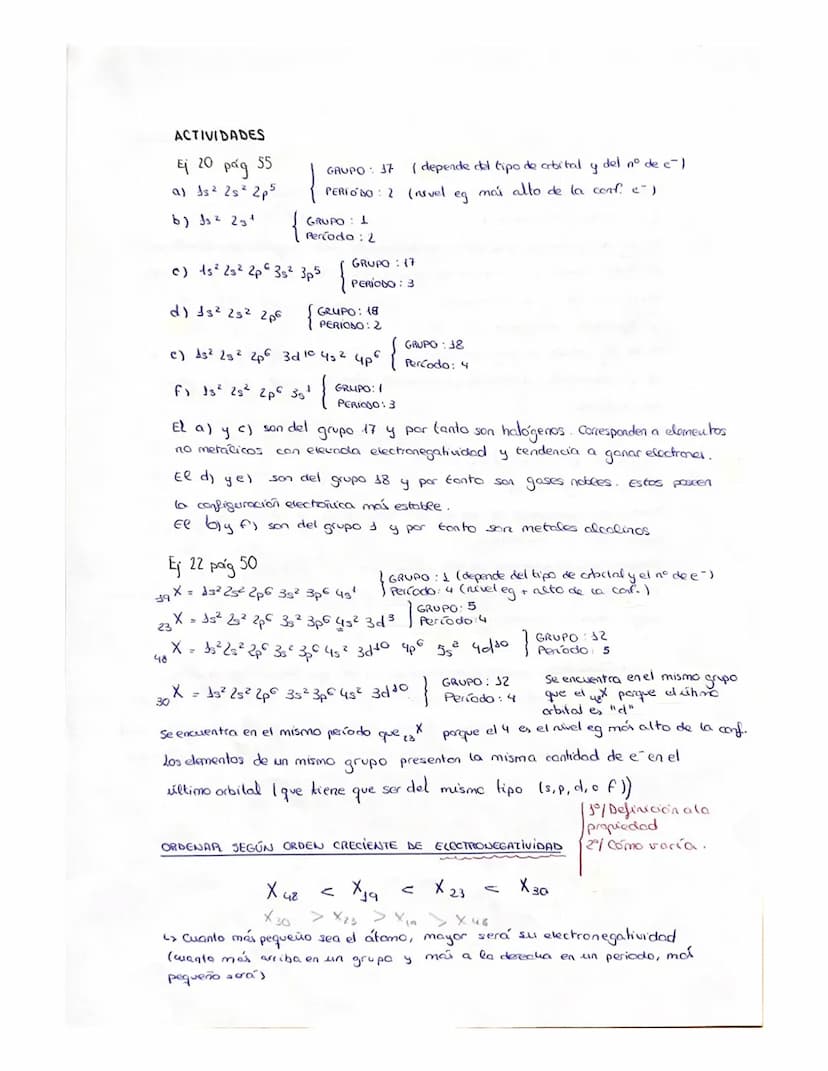 ACTIVIDADES
Ej 20 pág 55
GRUPO: 17 (depende del tipo de orbital y del nº de e⁻)
a) 1s² 2s² 2p⁵
PERÍODO: 2 (nivel eg más alto de la conf. e⁻)
b) 1s² 2s¹
GRUPO: 1
Período: 2
c) 1s² 2s² 2p⁶ 3s² 3p⁵
GRUPO: 17
PERÍODO: 3
d) 1s² 2s² 2p⁶
GRUPO: 18
PERIODO: 2
e) 1s² 2s² 2p⁶ 3d¹⁰ 4s² 4p⁶
GRUPO: 18
Período: 4
f) 1s² 2s² 2p⁶ 3s¹
GRUPO: 1
PERIODO: 3
El a) y c) son del grupo 17 y por tanto son halógenos. Corresponden a elementos
no metálicos con elevada electronegatividad y tendencia a ganar electrones.
El d) y e) son del grupo 18 y por tanto son gases nobles. Estos poseen
la configuración electrónica más estable.
El b) y f) son del grupo 1 y por tanto son metales alcalinos
Ej 22 pág 50
GRUPO: 1 (depende del tipo de orbital y el nº de e⁻)
₁₉X = 1s² 2s² 2p⁶ 3s² 3p⁶ 4s¹
Período: 4 (nivel eg + alto de la conf.)
₂₃X = 1s² 2s² 2p⁶ 3s² 3p⁶ 4s² 3d³
GRUPO: 5
Período: 4
₄₈X = 1s² 2s² 2p⁶ 3s² 3p⁶ 4s² 3d¹⁰ 4p⁶ 5s² 4d¹⁰
GRUPO: 12
Período: 5
₃₀X = 1s² 2s² 2p⁶ 3s² 3p⁶ 4s² 3d¹⁰
GRUPO: 12
Período: 4
Se encuentra en el mismo grupo
que el ₄₈X porque el último
orbital es "d"
Se encuentra en el mismo período que ₂₃X porque el 4 es el nivel eg más alto de la conf.
Los elementos de un mismo grupo presentan la misma cantidad de e⁻ en el
último orbital (que tiene que ser del mismo tipo (s, p, d, o f))
1º/ Definición a la
propiedad
2º/ Cómo varía.
ORDENAR SEGÚN ORDEN CRECIENTE DE ELECTRONEGATIVIDAD
X₄₈ < X₁₉ < X₂₃ < X₃₀
X₃₀ > X₂₃ > X₁₉ > X₄₈
↳ Cuanto más pequeño sea el átomo, mayor será su electronegatividad
(cuanto más arriba en un grupo y más a la derecha en un periodo, más
pequeño será)